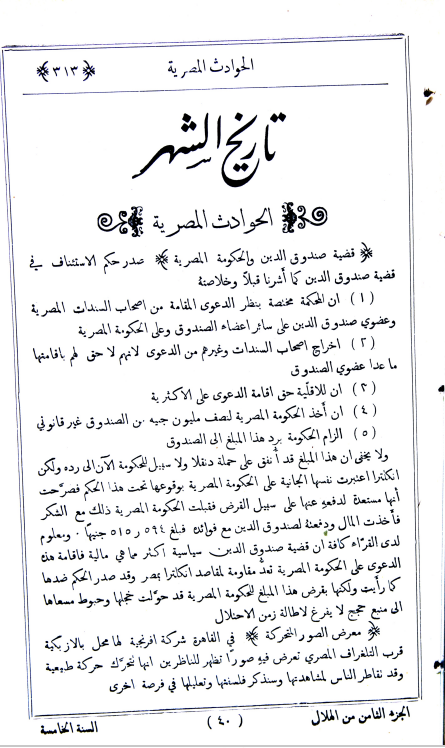 الحوادث المصرية
﴿ ٣١٣ ﴾
تاريخ الشهر
الحوادث المصرية
﴿ قضية صندوق الدين والحكومة المصرية ﴾ صدر حكم الاستئناف في
قضية صندوق الدين كما أشرنا قبلاً وخلاصتهُ
(١) ان المحكمة مختصة بنظر الدعوى المقامة من اصحاب السندات المصرية
وعضوي صندوق الدين على سائر اعضاء الصندوق وعلى الحكومة المصرية
(٢) اخراج اصحاب السندات وغيرهم من الدعوى لانهم لا حق لهم باقامتها
ما عدا عضوي الصندوق
(٣) ان للاقلية حق اقامة الدعوى على الاكثرية
(٤) ان أخذ الحكومة المصرية لنصف مليون جنيه من الصندوق غير قانوني
(٥) الزام الحكومة برد هذا المبلغ الى الصندوق
ولا يخفى ان هذا المبلغ قد أُنفق على حملة دنقلا ولا سبيل للحكومة الآن الى رده ولكن
انكلترا اعتبرت نفسها الجانية على الحكومة المصرية بوقوعها تحت هذا الحكم فصرَّحت
أنها مستعدة لدفعهِ عنها على سبيل القرض فقبلت الحكومة المصرية ذلك مع الشكر
فأخذت المال ودفعتهُ لصندوق الدين مع فوائدهِ فبلغ ٥٩٤ر٥١٥ جنيهاً . ومعلوم
لدى القرَّاء كافة ان قضية صندوق الدين سياسية اكثر مما هي مالية فاقامة هذه
الدعوى على الحكومة المصرية تعدُّ مقاومة لمقاصد انكلترا بمصر وقد صدر الحكم ضدها
كما رأيت ولكنها بقرض هذا المبلغ للحكومة المصرية قد حوَّلت خجلها وحبوط مسعاها
الى منبع حجج لا يفرغ لاطالة زمن الاحتلال
﴿ معرض الصور المتحركة ﴾ في القاهرة شركة افرنجية لها محل بالازبكية
قرب التلغراف المصري تعرض فيهِ صوراً تظهر للناظرين انها تتحرَّك حركة طبيعية
وقد تقاطر الناس لمشاهدتها وسنذكر فلسفتها وتعليلها في فرصة اخرى
الجزء الثامن من الهلال
(٤٠)
السنة الخامسة